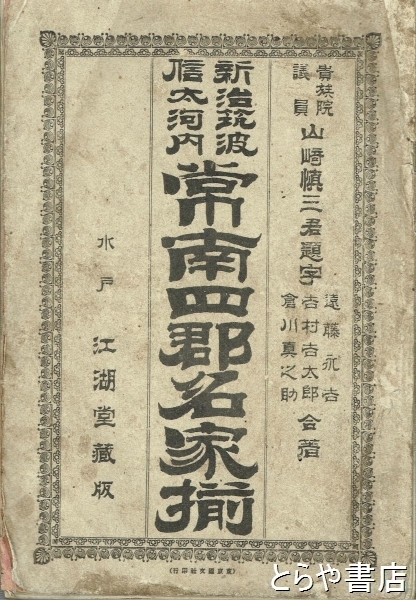 貴族院
議員
山﨑慎三君題字
遠藤永吉
吉村吉太郎
倉川真之助
合著
新治筑波
信太河内
常南四郡名家揃
水戸
江湖堂蔵版
とらや書店